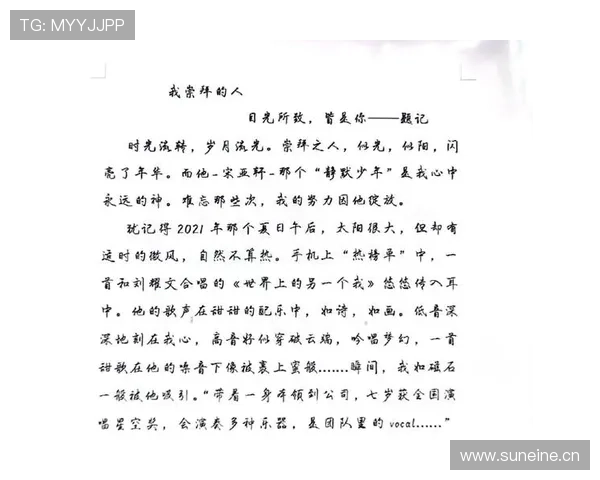 TG: MYYJJPP
我崇拜的人
目光所致，皆是你——题记
时光流转，岁月流光。崇拜之人，似光，似阳，闪
亮了年华。而他-宋亚轩-那个“静默少年”是我心中
永远的神。难忘那些次，我的努力因他绽放。
犹记得2021年那个夏日午后，太阳很大，但却有
运时的微风，自然不算热。手机上“热格平”中，一
首和刘耀文合唱的《世界上的另一个我》悠悠传入耳
中。他的歌声在甜甜的配乐中，如诗，如画。低音深
深地刻在我心，高音好似穿破云端，吟唱梦幻，一首
甜歌在他的嗓音下像被裹上蜜般.......瞬间，我如磁石
一般被他吸引。“带着一身本领到公司，七岁获全国演
唱星空奖，会演奏多种乐器，是团队里的vocal......”
www.suneine.cn